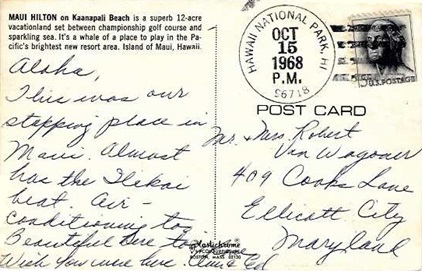 MAUI HILTON on Kaanapali Beach is a superb 12-acre
vacationland set between championship golf course and
sparkling sea. It's a whale of a place to play in the Pa-
cific's brightest new resort area. Island of Maui, Hawaii.
Aloha,
This was our
stopping place in
Maui. Almost
has the Ilikai
beat. Air-
conditioning too
Beautiful here too
Wish you were here. Ed
HAWAII NATIONAL PARK, HI
OCT
15
1968
P.M.
96718
U.S. POSTAGE
POST CARD
Mr. Mrs. Robert
Van Wagoner
409 Cooks Lane
Ellicott City
Maryland
Plastichrome